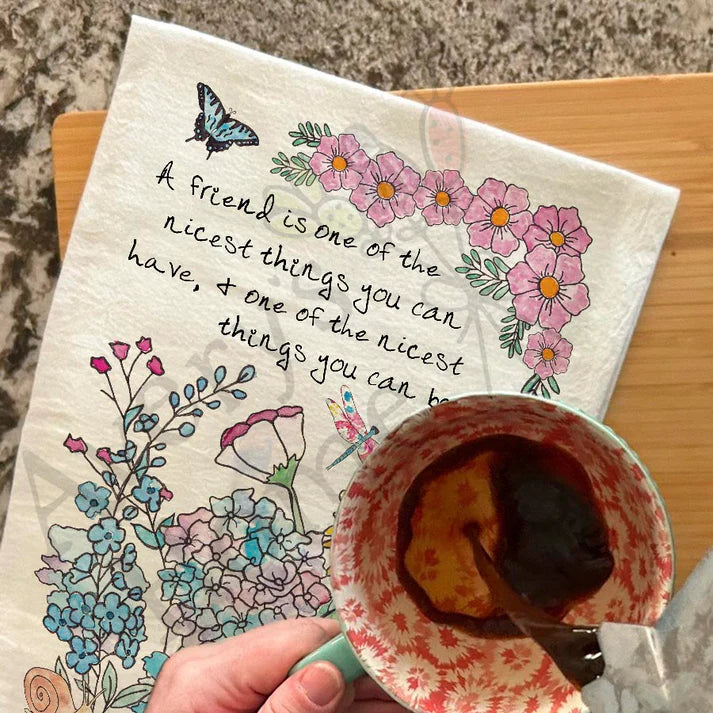 A friend is one of the
nicest things you can
have, & one of the nicest
things you can